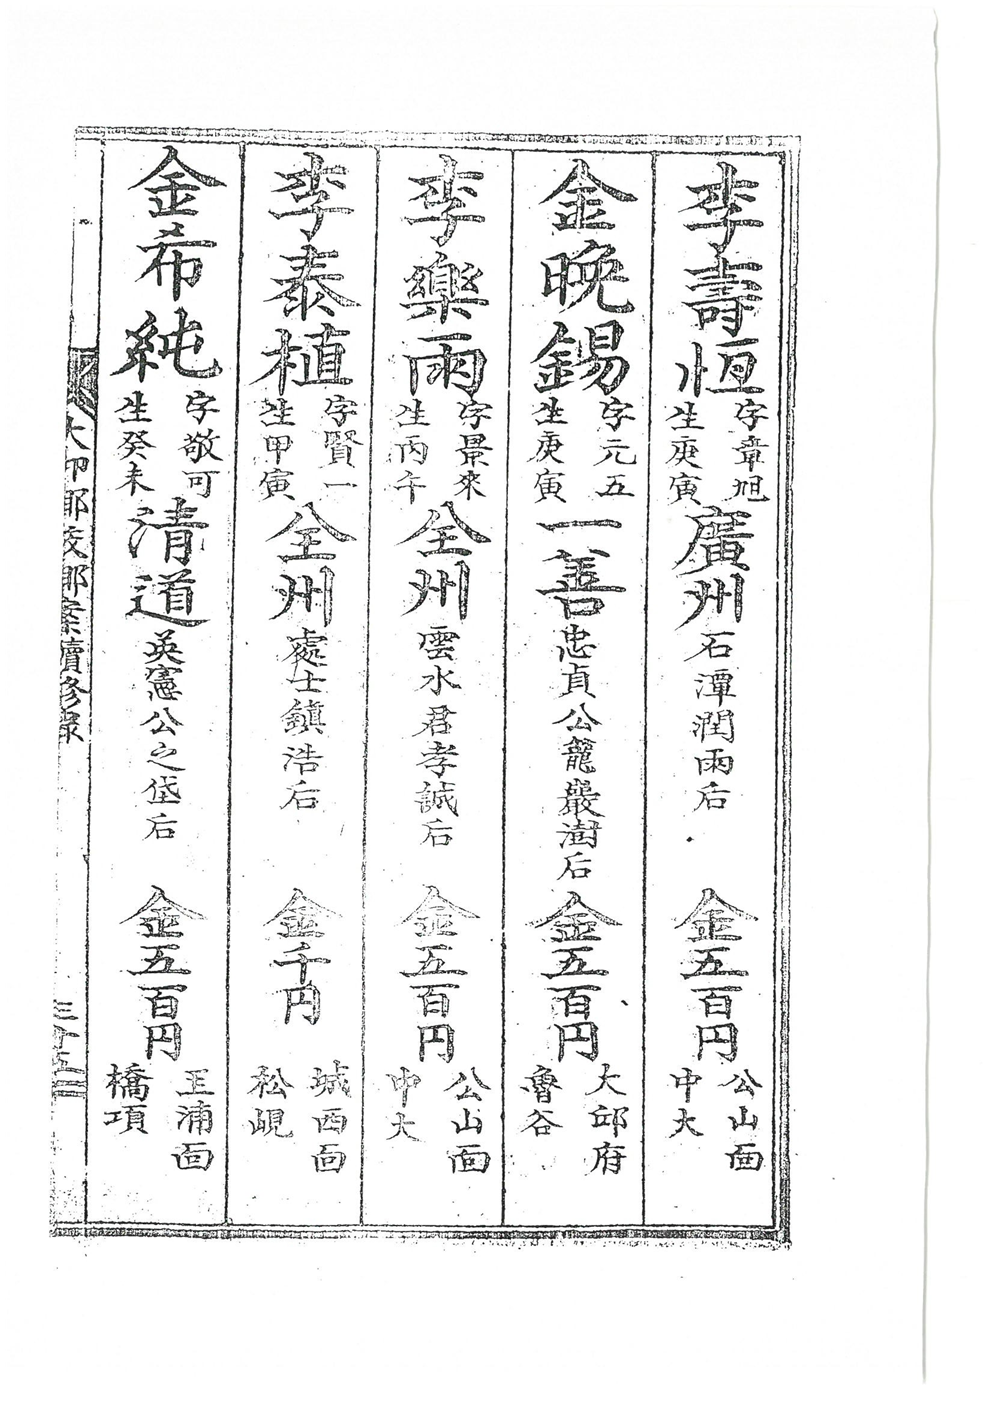 李壽恒 字章旭 生庚寅 廣州 石潭潤雨后 金五百円 公山面 中大
金晩錫 字元五 生庚寅 一善 忠貞公籠巖澍后 金五百円 大邱府 魯谷
李樂雨 字景來 生丙午 全州 雲水君孝誠后 金五百円 公山面 中大
李泰植 字賢一 生甲寅 全州 處士鎮浩后 金千円 城西面 松峴
金希純 字敬可 生癸未 清道 英憲公之岱后 金五百円 玉浦面 橋項
大邱鄕校鄕案續修錄 三十五